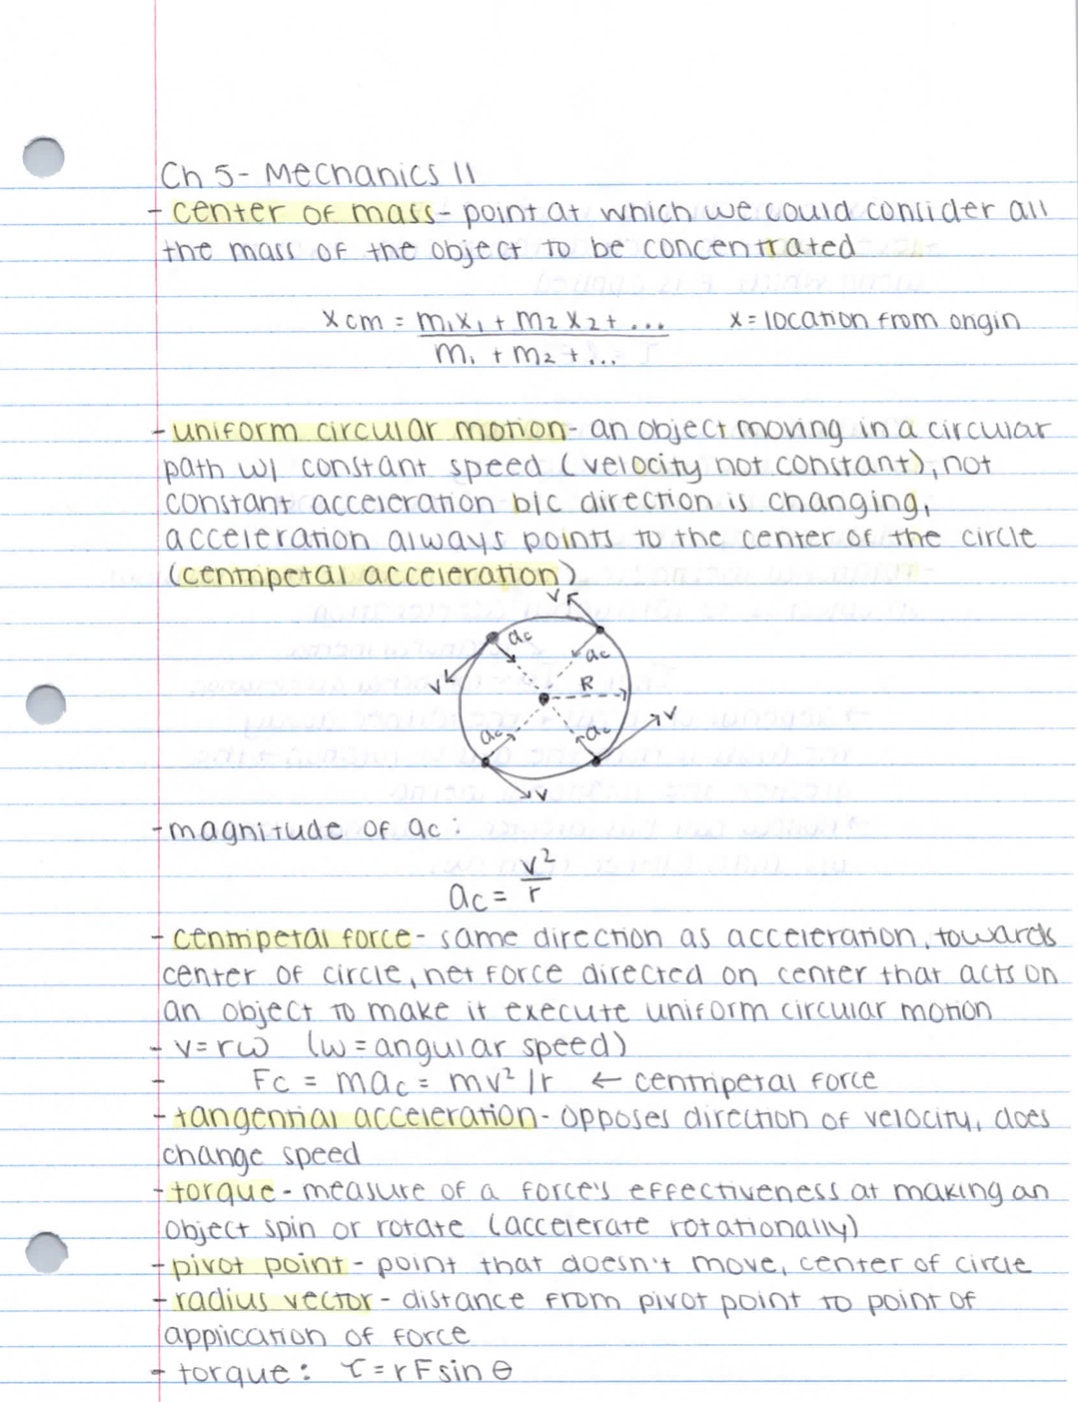 Ch 5- Mechanics II
- center of mass- point at which we could consider all
the mass of the object to be concentrated
xcm = m₁x₁ + m₂x₂ + ... x = location from origin
m₁ + m₂ + ...
- uniform circular motion- an object moving in a circular
path w/ constant speed (velocity not constant), not
constant acceleration b/c direction is changing,
acceleration always points to the center of the circle
(centripetal acceleration)
v
ac
ac
v
R
v
ac
ac
v
- magnitude of ac:
ac = v²/r
- centripetal force- same direction as acceleration, towards
center of circle, net force directed on center that acts on
an object to make it execute uniform circular motion
- v=rω (ω = angular speed)
- Fc = mac = mv²/r ← centripetal force
- tangential acceleration- opposes direction of velocity, does
change speed
- torque- measure of a force's effectiveness at making an
object spin or rotate (accelerate rotationally)
- pivot point- point that doesn't move, center of circle
- radius vector- distance from pivot point to point of
application of force
- torque: τ=rFsinθ